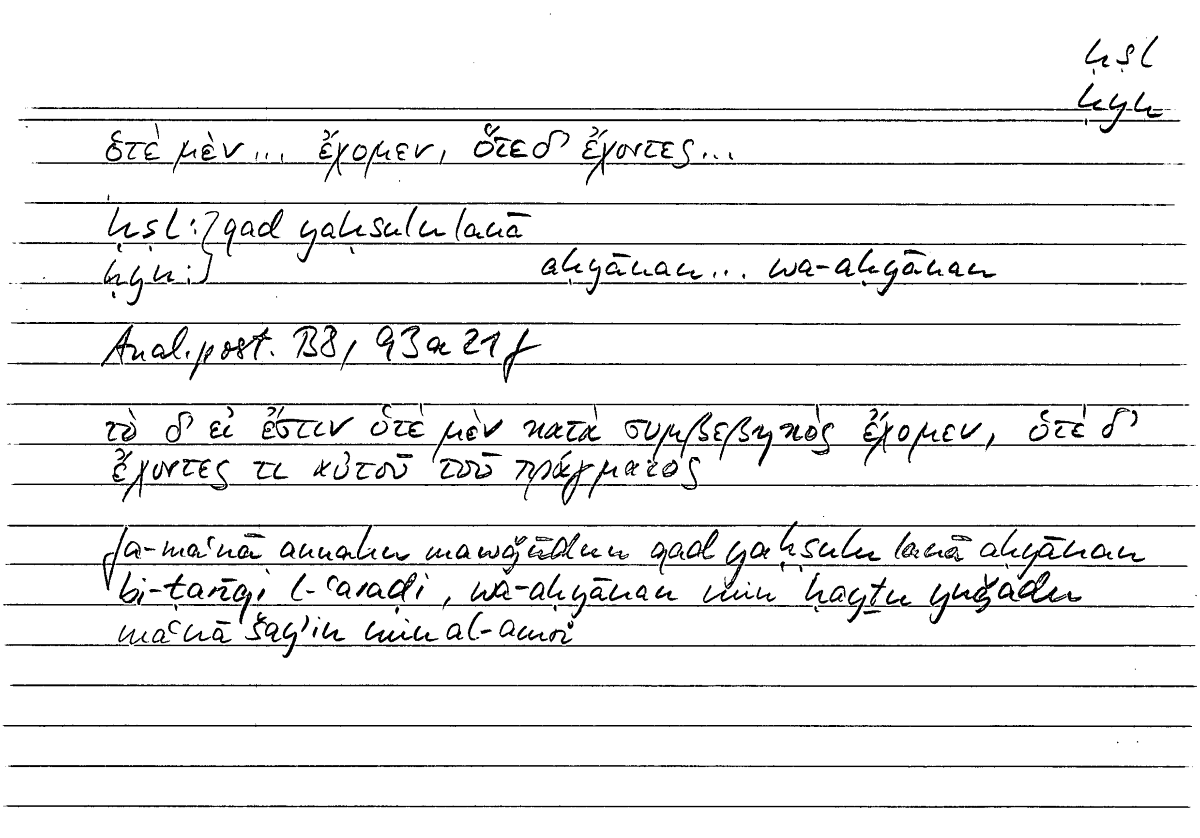 ḥṣl
ḥyn
ὁτὲ μὲν... ἔχομεν, ὅτε δ' ἔχοντες...
ḥṣl:} qad yaḥṣulu lanā
ḥyn:} aḥyānan... wa-aḥyānan
Anal. post. B8, 93a21f
τὸ δ' εἰ ἔστιν ὁτὲ μὲν κατὰ συμβεβηκὸς ἔχομεν, ὁτὲ δ'
ἔχοντες τι αὐτοῦ τοῦ πράγματος
fa-maʿnā annahu mawǧūdun qad yaḥṣulu lanā aḥyānan
bi-ṭarīqi l-ʿaraḍi, wa-aḥyānan min ḥayṯu yuǧadu
maʿnā šayʾin min al-amri